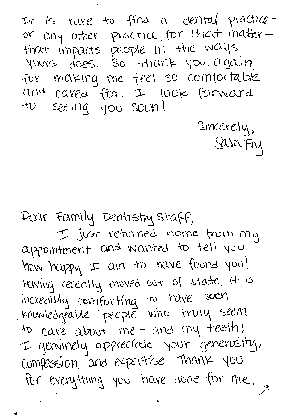 It is rare to find a dental practice -
or any other practice for that matter -
that impacts people in the ways
yours does. So thank you again
for making me feel so comfortable
and cared for. I look forward
to seeing you soon!
Sincerely,
Fry
Dear Family Dentistry Staff,
I just returned home from my
appointment and wanted to tell you
how happy I am to have found you!
Having recently moved out of state, it is
incredibly comforting to have such
knowledgeable people who truly seem
to care about me - and my teeth!
I genuinely appreciate your generosity,
compassion, and expertise. Thank you
for everything you have done for me.